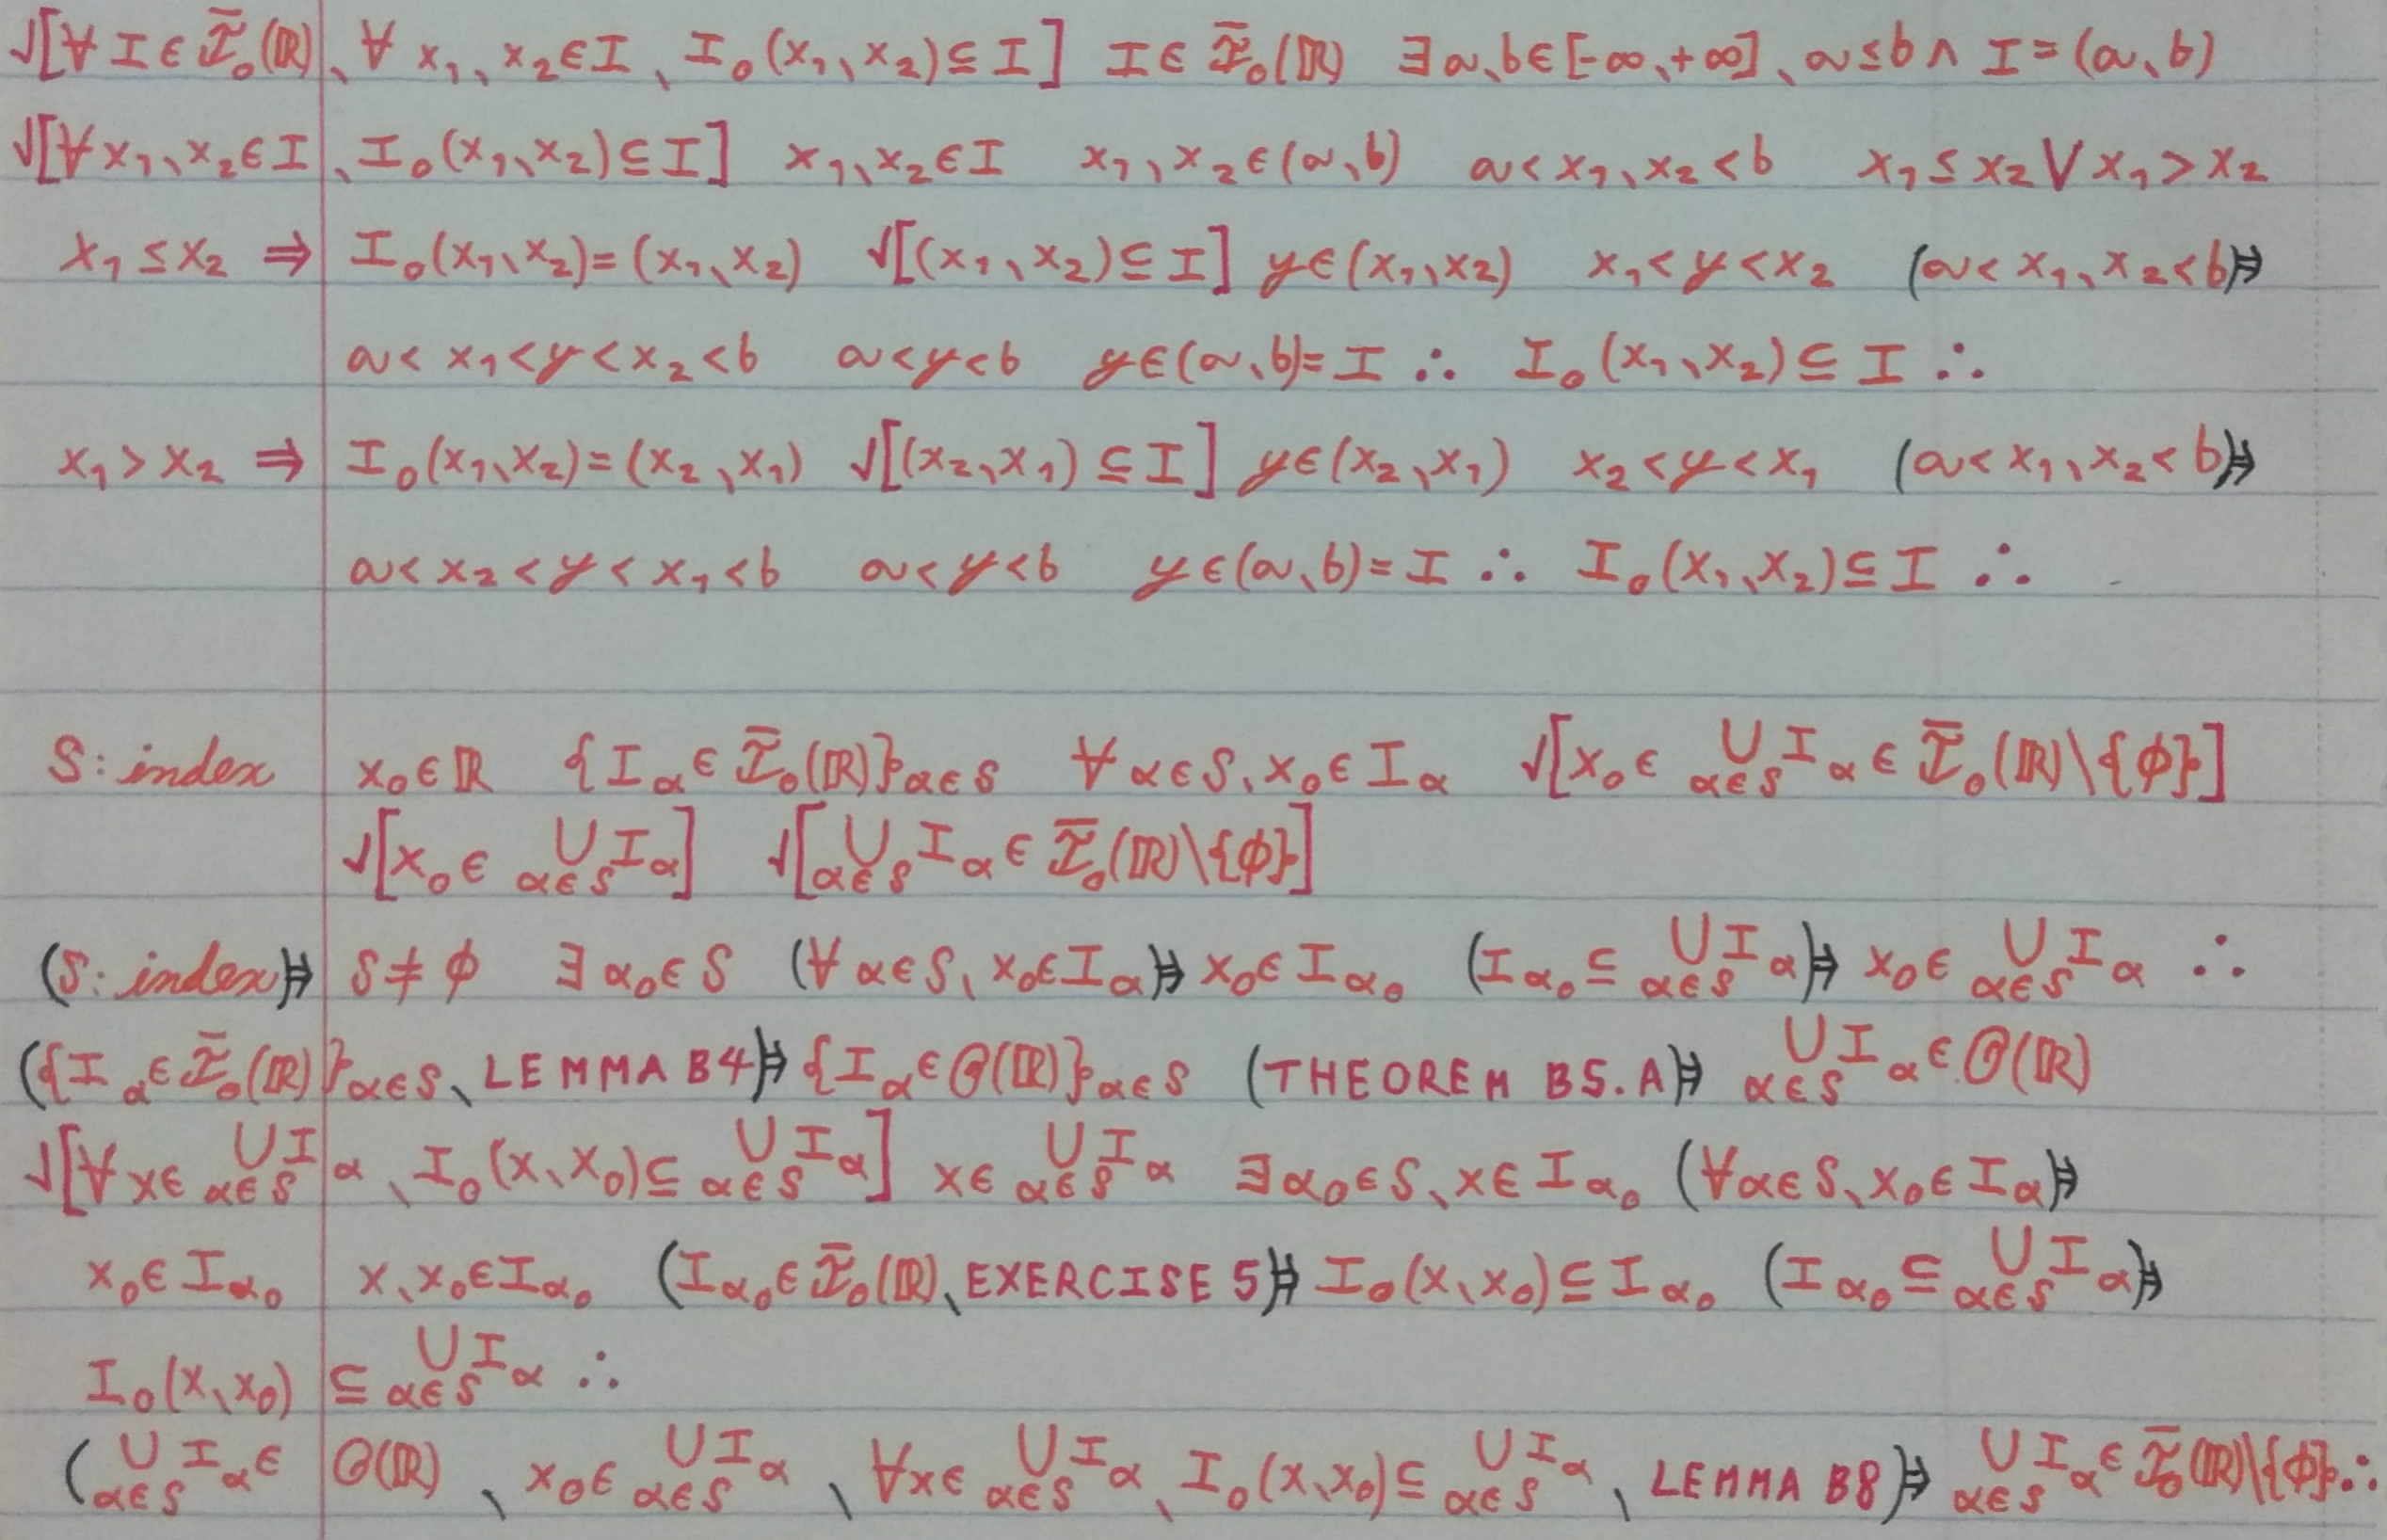 √[∀ I ∈ Ī₀(ℝ)、∀ x₁、x₂ ∈ I、I₀(x₁、x₂) ⊆ I] I ∈ Ī₀(ℝ) ∃ a、b ∈ [-∞、+∞]、a ≤ b ∧ I = (a、b)
√[∀ x₁、x₂ ∈ I、I₀(x₁、x₂) ⊆ I] x₁、x₂ ∈ I x₁、x₂ ∈ (a、b) a < x₁、x₂ < b x₁ ≤ x₂ ∨ x₁ > x₂
x₁ ≤ x₂ ⇒ I₀(x₁、x₂) = (x₁、x₂) √[(x₁、x₂) ⊆ I] y ∈ (x₁、x₂) x₁ < y < x₂ (a < x₁、x₂ < b)⇒
a < x₁ < y < x₂ < b a < y < b y ∈ (a、b) = I ∴ I₀(x₁、x₂) ⊆ I ∴
x₁ > x₂ ⇒ I₀(x₁、x₂) = (x₂、x₁) √[(x₂、x₁) ⊆ I] y ∈ (x₂、x₁) x₂ < y < x₁ (a < x₁、x₂ < b)⇒
a < x₂ < y < x₁ < b a < y < b y ∈ (a、b) = I ∴ I₀(x₁、x₂) ⊆ I ∴
S: index x₀ ∈ ℝ {I_α ∈ Ī₀(ℝ)}_{α∈S} ∀ α ∈ S、x₀ ∈ I_α √[x₀ ∈ ⋃_{α∈S} I_α ∈ Ī₀(ℝ)\{ϕ}]
√[x₀ ∈ ⋃_{α∈S} I_α] √[⋃_{α∈S} I_α ∈ Ī₀(ℝ)\{ϕ}]
(S: index)⇒ S ≠ ϕ ∃ α₀ ∈ S (∀ α ∈ S、x₀ ∈ I_α)⇒ x₀ ∈ I_{α₀} (I_{α₀} ⊆ ⋃_{α∈S} I_α)⇒ x₀ ∈ ⋃_{α∈S} I_α ∴
({I_α ∈ Ī₀(ℝ)}_{α∈S}、LEMMA B4)⇒ {I_α ∈ O(ℝ)}_{α∈S} (THEOREM B5.A)⇒ ⋃_{α∈S} I_α ∈ O(ℝ)
√[∀ x ∈ ⋃_{α∈S} I_α、I₀(x、x₀) ⊆ ⋃_{α∈S} I_α] x ∈ ⋃_{α∈S} I_α ∃ α₀ ∈ S、x ∈ I_{α₀} (∀ α ∈ S、x₀ ∈ I_α)⇒
x₀ ∈ I_{α₀} x、x₀ ∈ I_{α₀} (I_{α₀} ∈ Ī₀(ℝ)、EXERCISE 5)⇒ I₀(x、x₀) ⊆ I_{α₀} (I_{α₀} ⊆ ⋃_{α∈S} I_α)⇒
I₀(x、x₀) ⊆ ⋃_{α∈S} I_α ∴
(⋃_{α∈S} I_α ∈ O(ℝ)、x₀ ∈ ⋃_{α∈S} I_α、∀ x ∈ ⋃_{α∈S} I_α、I₀(x、x₀) ⊆ ⋃_{α∈S} I_α、LEMMA B8)⇒ ⋃_{α∈S} I_α ∈ Ī₀(ℝ)\{ϕ} ∴